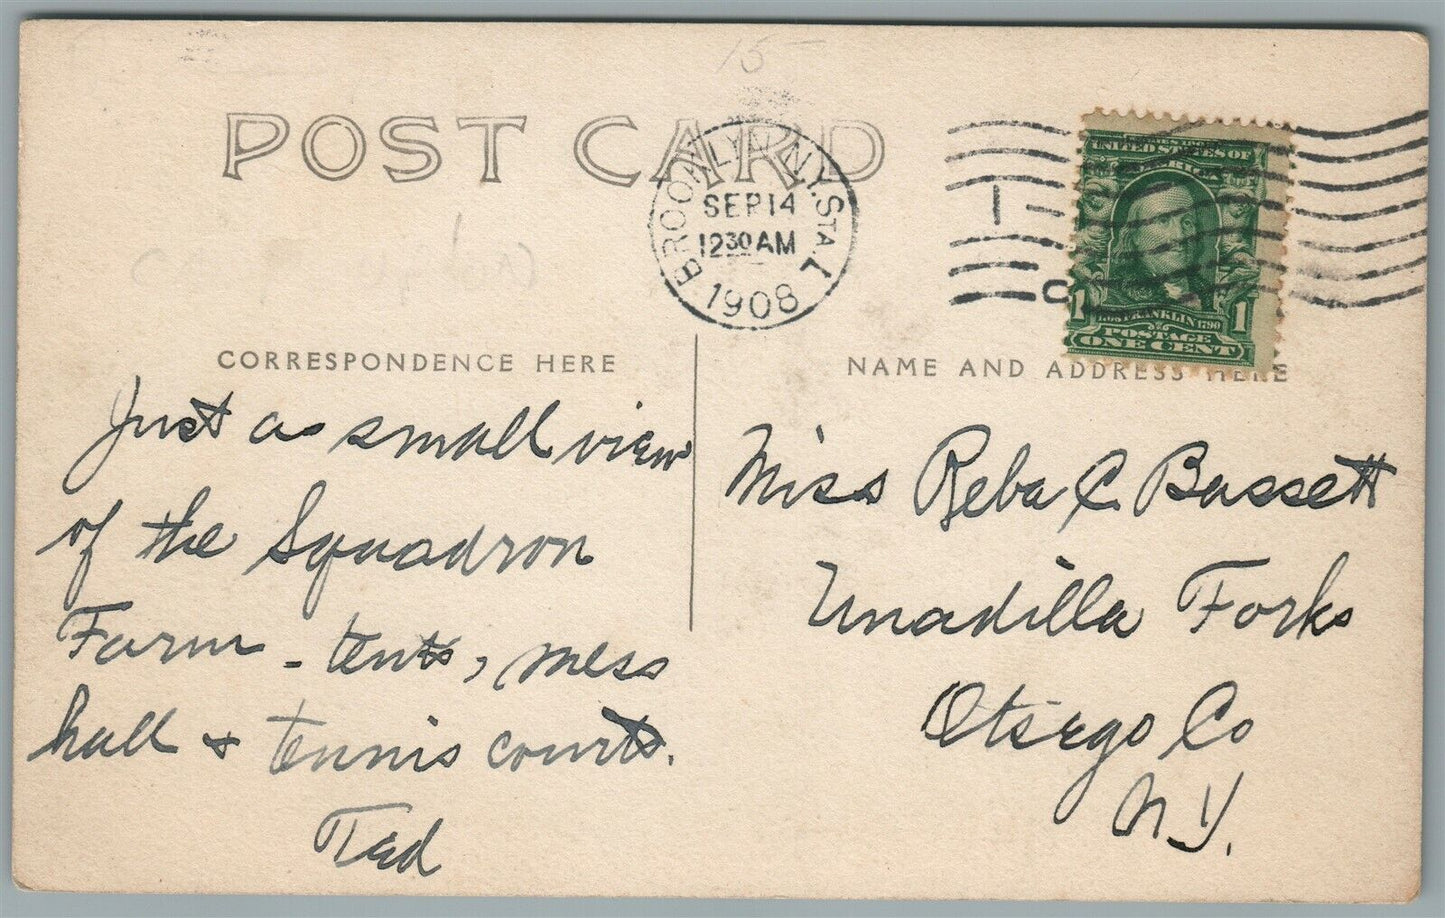 15
POST CARD
BROOKLYN, N.Y. STA. L
SEP 14
12 30 AM
1908
UNITED STATES OF
AMERICA
1 1
FRANKLIN 1790
POSTAGE
ONE CENT
CORRESPONDENCE HERE
NAME AND ADDRESS HERE
Just a small view
of the Squadron
Farm - tents, mess
hall + tennis courts.
Ted
Miss Reba C Bassett
Unadilla Forks
Otsego Co
N.Y.